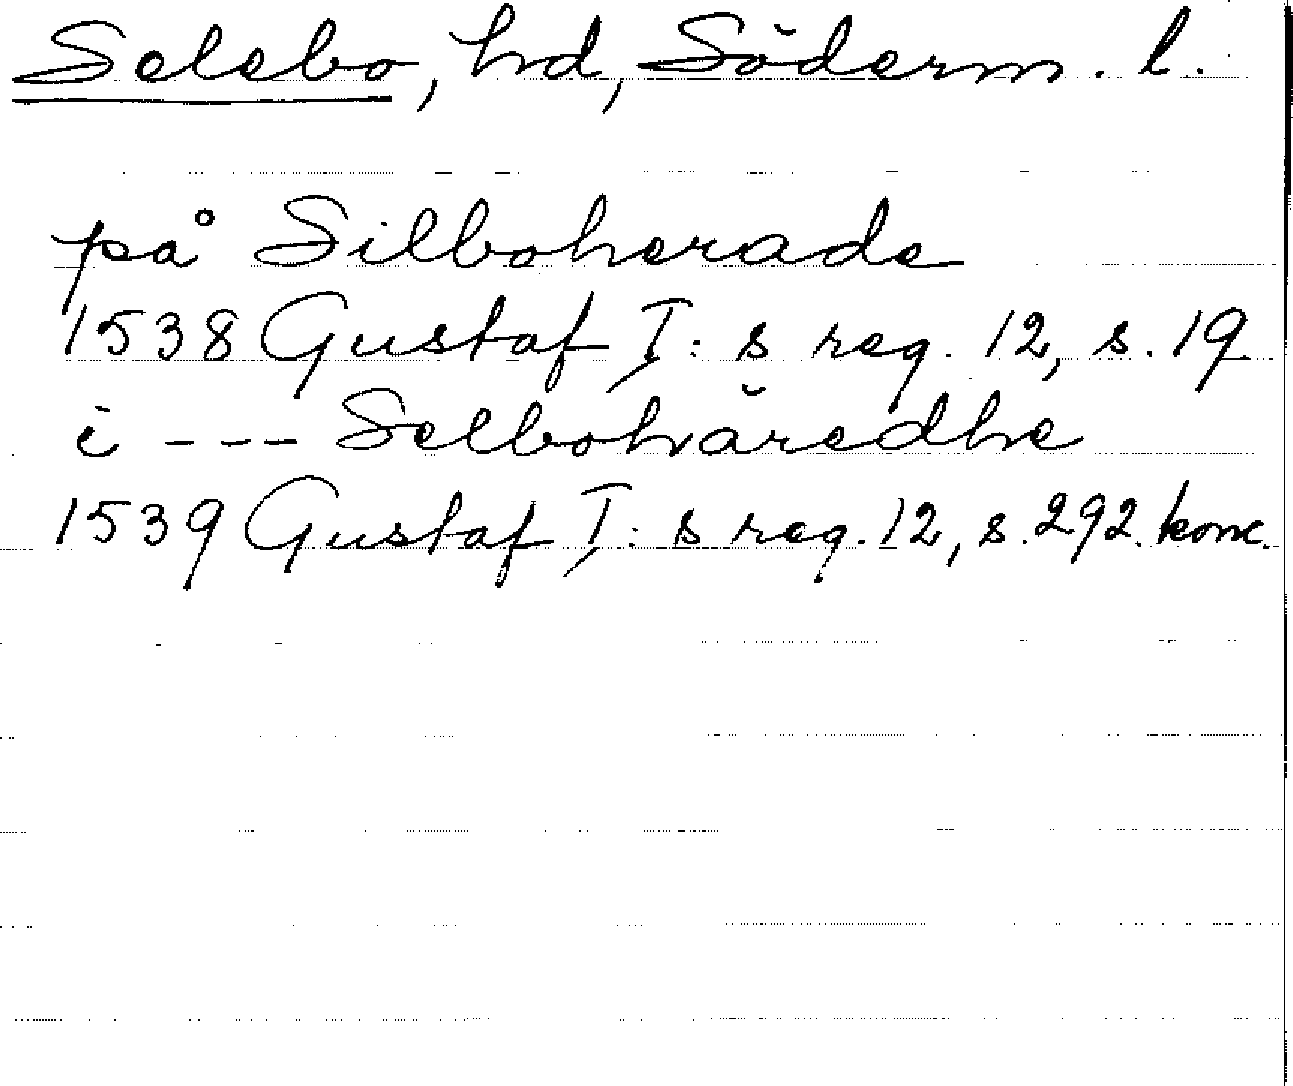 Selebo, hd, Söderm. l.
på Silboherade
1538 Gustaf I: s reg. 12, s. 19
i --- Selbohäredhe
1539 Gustaf I: s reg. 12, s. 292. konc.